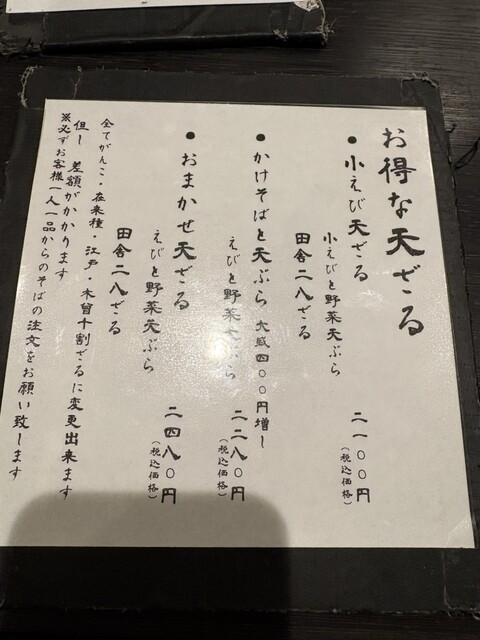 お得な天ざる
●小えび天ざる
小えびと野菜天ぶら
田舎二八ざる
二一〇〇円
(税込価格)
●かけそばと天ぷら 大盛四〇〇円増し
えびと野菜天ぷら
二二八〇円
(税込価格)
●おまかせ天ざる
えびと野菜天ぷら
田舎二八ざる
二四八〇円
(税込価格)
全てがんこ・在来種・江戸・木曽十割ざるに変更出来ます
但し 差額がかかります
※必ずお客様一人一品からのそばの注文をお願い致します